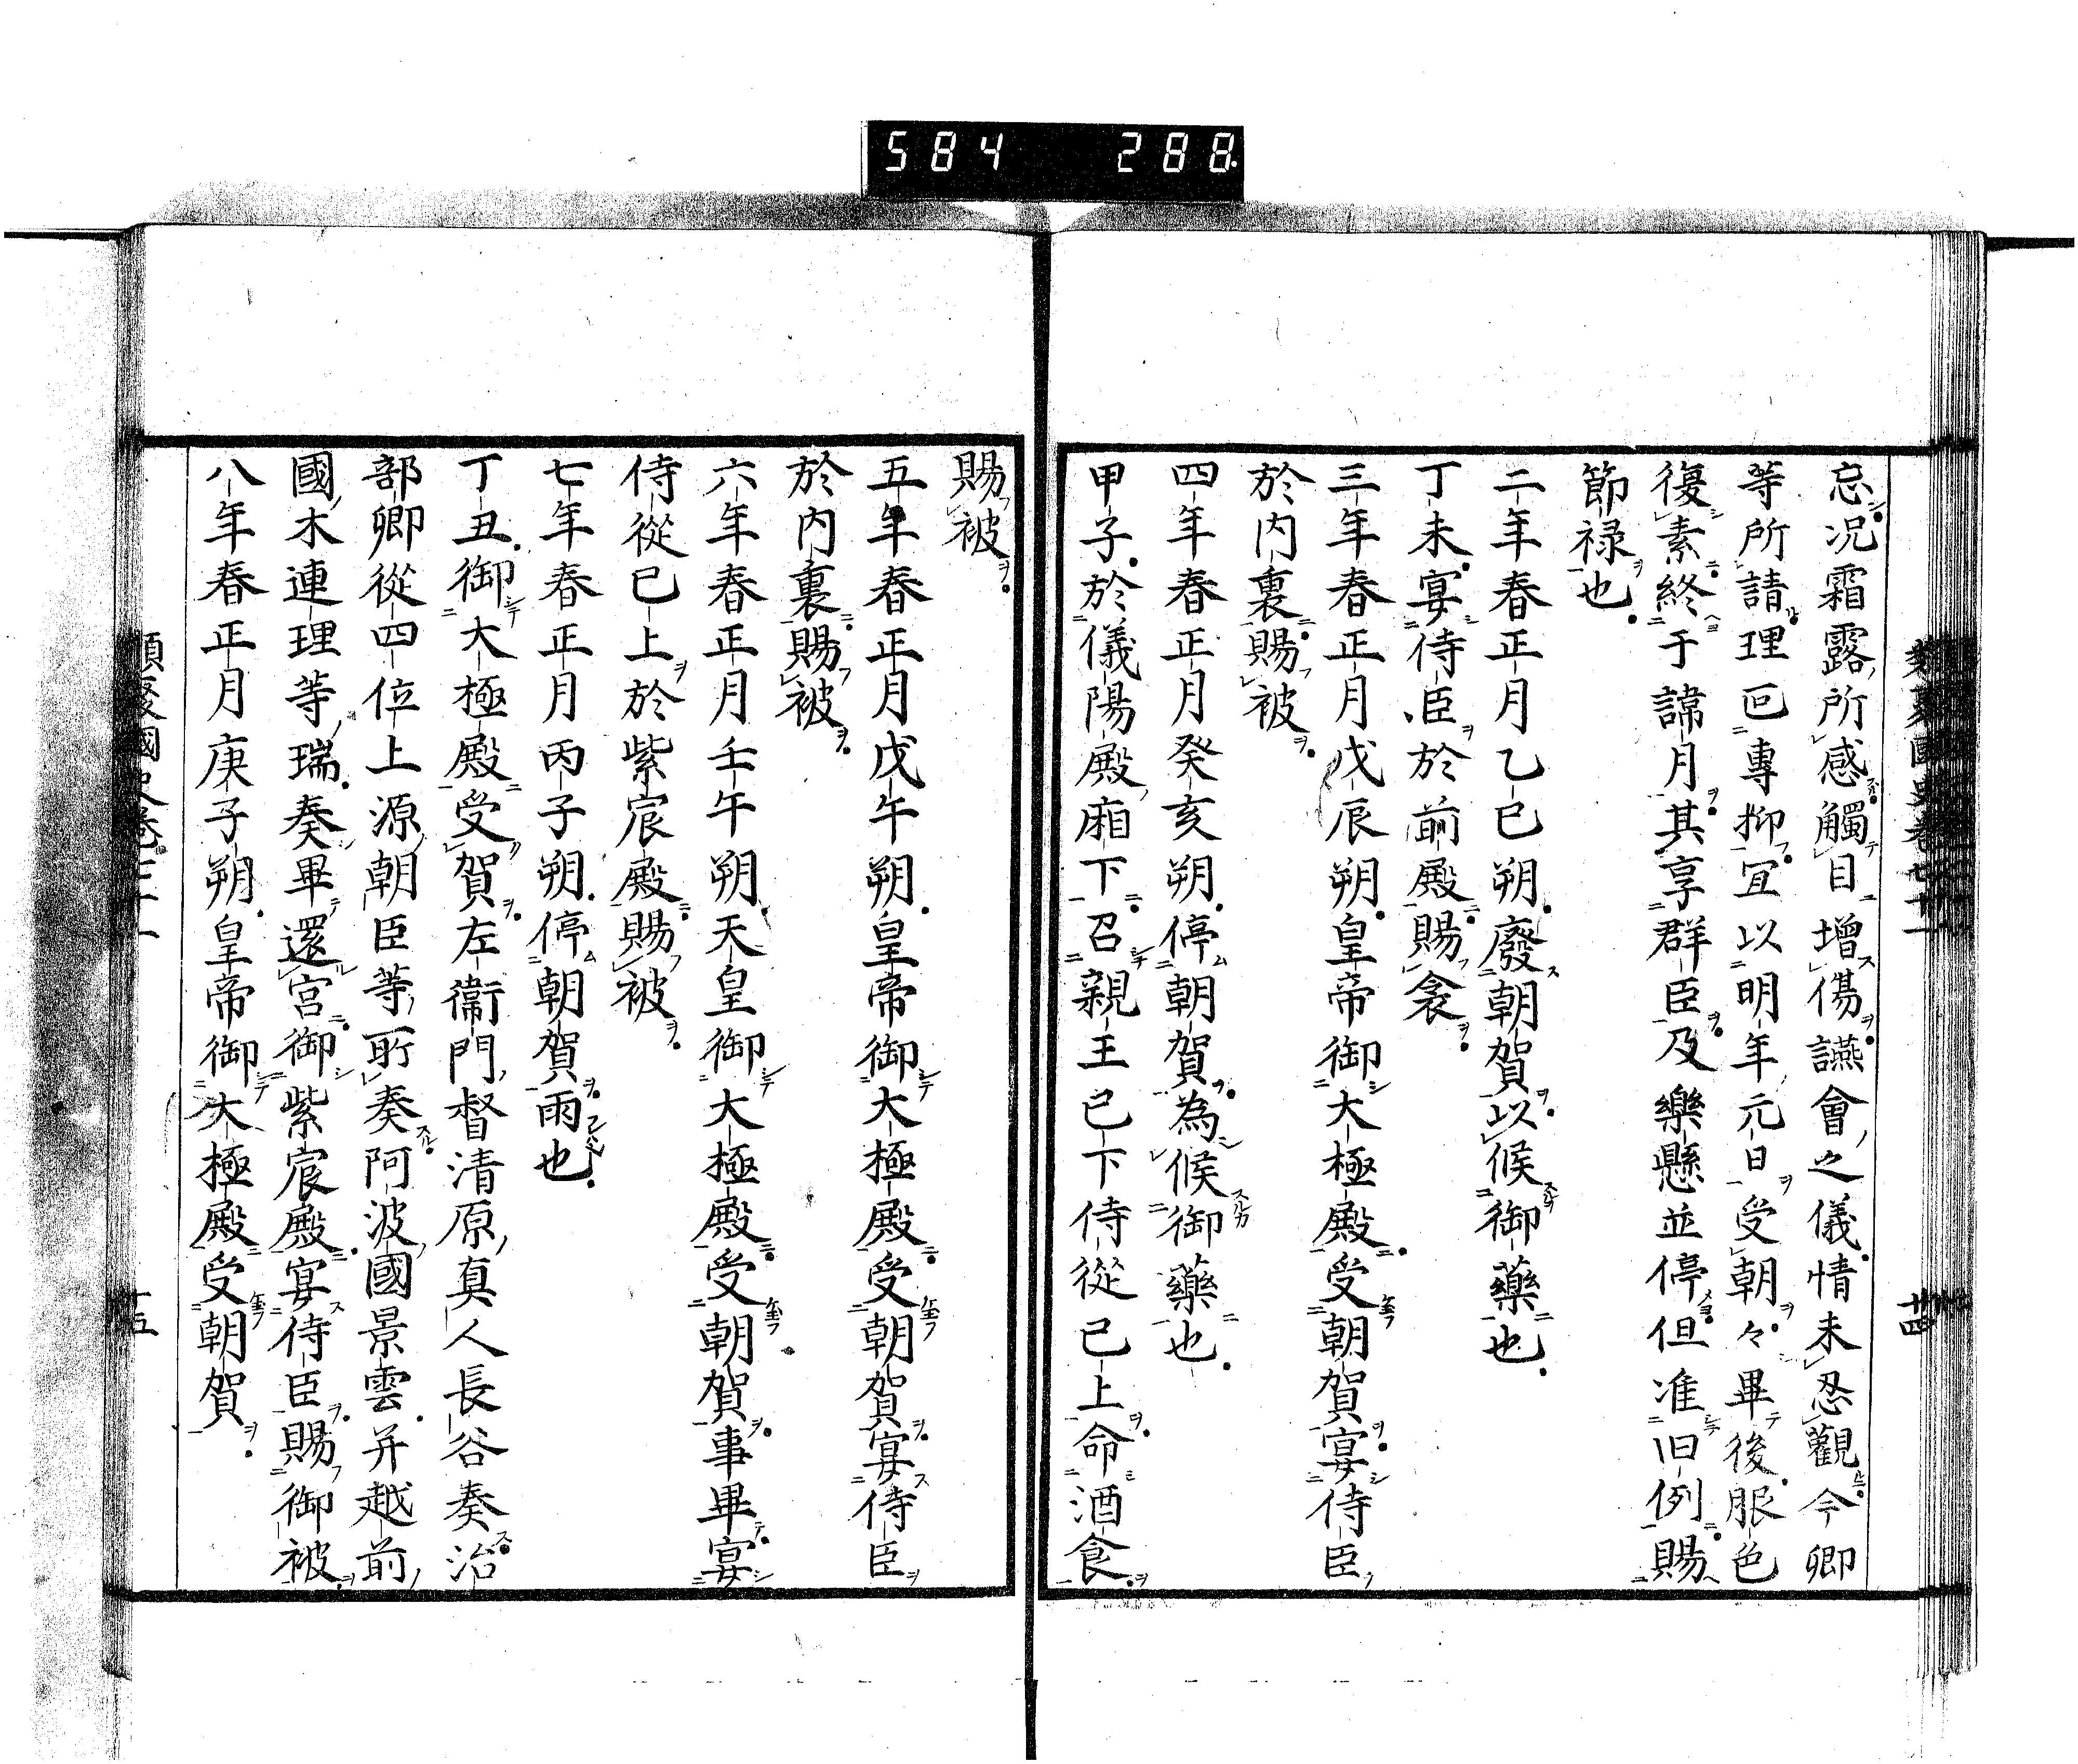 584 288
忘况霜露所感觸目增傷讌會之儀情未忍觀今卿
等所請理叵專抑宜以明年元日受朝々畢後服色
復素終于諱月其享群臣及樂懸並停但准旧例賜
節禄也
二年春正月乙巳朔廢朝賀以候御藥也
丁未宴侍臣於前殿賜衾
三年春正月戊辰朔皇帝御大極殿受朝賀宴侍臣
於内裏賜被
四年春正月癸亥朔停朝賀為候御藥也
甲子於儀陽殿廂下召親王已下侍從已上命酒食
賜被
五年春正月戊午朔皇帝御大極殿受朝賀宴侍臣
於内裏賜被
六年春正月壬午朔天皇御大極殿受朝賀事畢宴
侍從已上於紫宸殿賜被
七年春正月丙子朔停朝賀雨也
丁丑御大極殿受賀左衞門督清原真人長谷奏治
部卿從四位上源朝臣等所奏阿波國景雲并越前
國木連理等瑞奏畢還宮御紫宸殿宴侍臣賜御被
八年春正月庚子朔皇帝御大極殿受朝賀